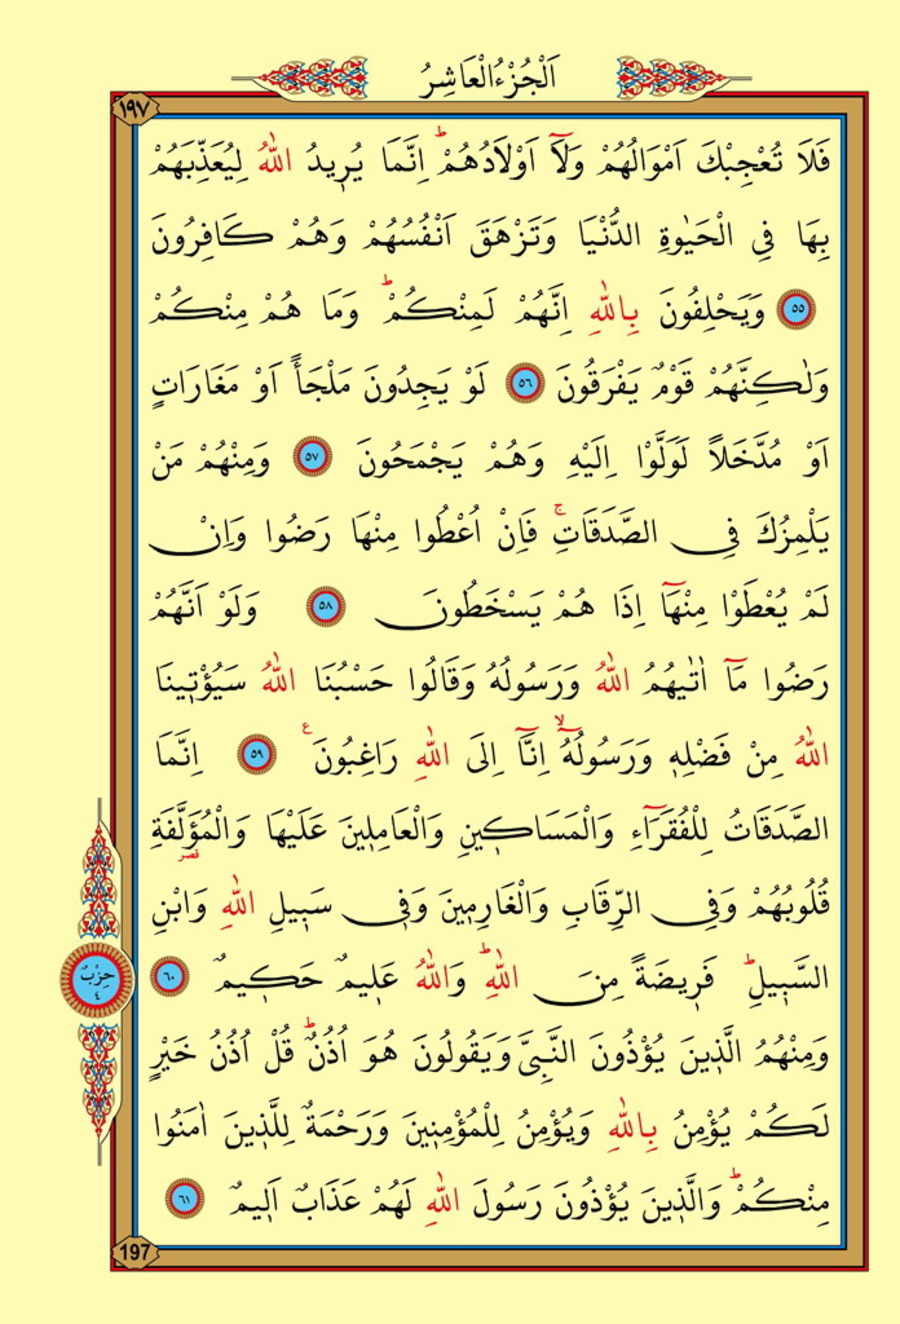 اَلْجُزْءُالْعَاشِرُ
١٩٧
فَلَا تُعْجِبْكَ اَمْوَالُهُمْ وَلَٓا اَوْلَادُهُمْۜ اِنَّمَا يُر۪يدُ اللّٰهُ لِيُعَذِّبَهُمْ
بِهَا فِي الْحَيٰوةِ الدُّنْيَا وَتَزْهَقَ اَنْفُسُهُمْ وَهُمْ كَافِرُونَ
٥٥ وَيَحْلِفُونَ بِاللّٰهِ اِنَّهُمْ لَمِنْكُمْۜ وَمَا هُمْ مِنْكُمْ
وَلٰكِنَّهُمْ قَوْمٌ يَفْرَقُونَ ٥٦ لَوْ يَجِدُونَ مَلْجَأً اَوْ مَغَارَاتٍ
اَوْ مُدَّخَلاً لَوَلَّوْا اِلَيْهِ وَهُمْ يَجْمَحُونَ ٥٧ وَمِنْهُمْ مَنْ
يَلْمِزُكَ فِي الصَّدَقَاتِۚ فَاِنْ اُعْطُوا مِنْهَا رَضُوا وَاِنْ
لَمْ يُعْطَوْا مِنْهَٓا اِذَا هُمْ يَسْخَطُونَ ٥٨ وَلَوْ اَنَّهُمْ
رَضُوا مَٓا اٰتٰيهُمُ اللّٰهُ وَرَسُولُهُ وَقَالُوا حَسْبُنَا اللّٰهُ سَيُؤْت۪ينَا
اللّٰهُ مِنْ فَضْلِه۪ وَرَسُولُهُٓۙ اِنَّٓا اِلَى اللّٰهِ رَاغِبُونَ۟ ع ٥٩ اِنَّمَا
الصَّدَقَاتُ لِلْفُقَرَٓاءِ وَالْمَسَاك۪ينِ وَالْعَامِل۪ينَ عَلَيْهَا وَالْمُؤَلَّفَةِ
قصر
قُلُوبُهُمْ وَفِي الرِّقَابِ وَالْغَارِم۪ينَ وَف۪ي سَب۪يلِ اللّٰهِ وَابْنِ
السَّب۪يلِۜ فَر۪يضَةً مِنَ اللّٰهِۜ وَاللّٰهُ عَل۪يمٌ حَك۪يمٌ ٦٠
وَمِنْهُمُ الَّذ۪ينَ يُؤْذُونَ النَّبِيَّ وَيَقُولُونَ هُوَ اُذُنٌۜ قُلْ اُذُنُ خَيْرٍ
لَكُمْ يُؤْمِنُ بِاللّٰهِ وَيُؤْمِنُ لِلْمُؤْمِن۪ينَ وَرَحْمَةٌ لِلَّذ۪ينَ اٰمَنُوا
مِنْكُمْۜ وَالَّذ۪ينَ يُؤْذُونَ رَسُولَ اللّٰهِ لَهُمْ عَذَابٌ اَل۪يمٌ ٦١
حِزْبٌ
٤
197